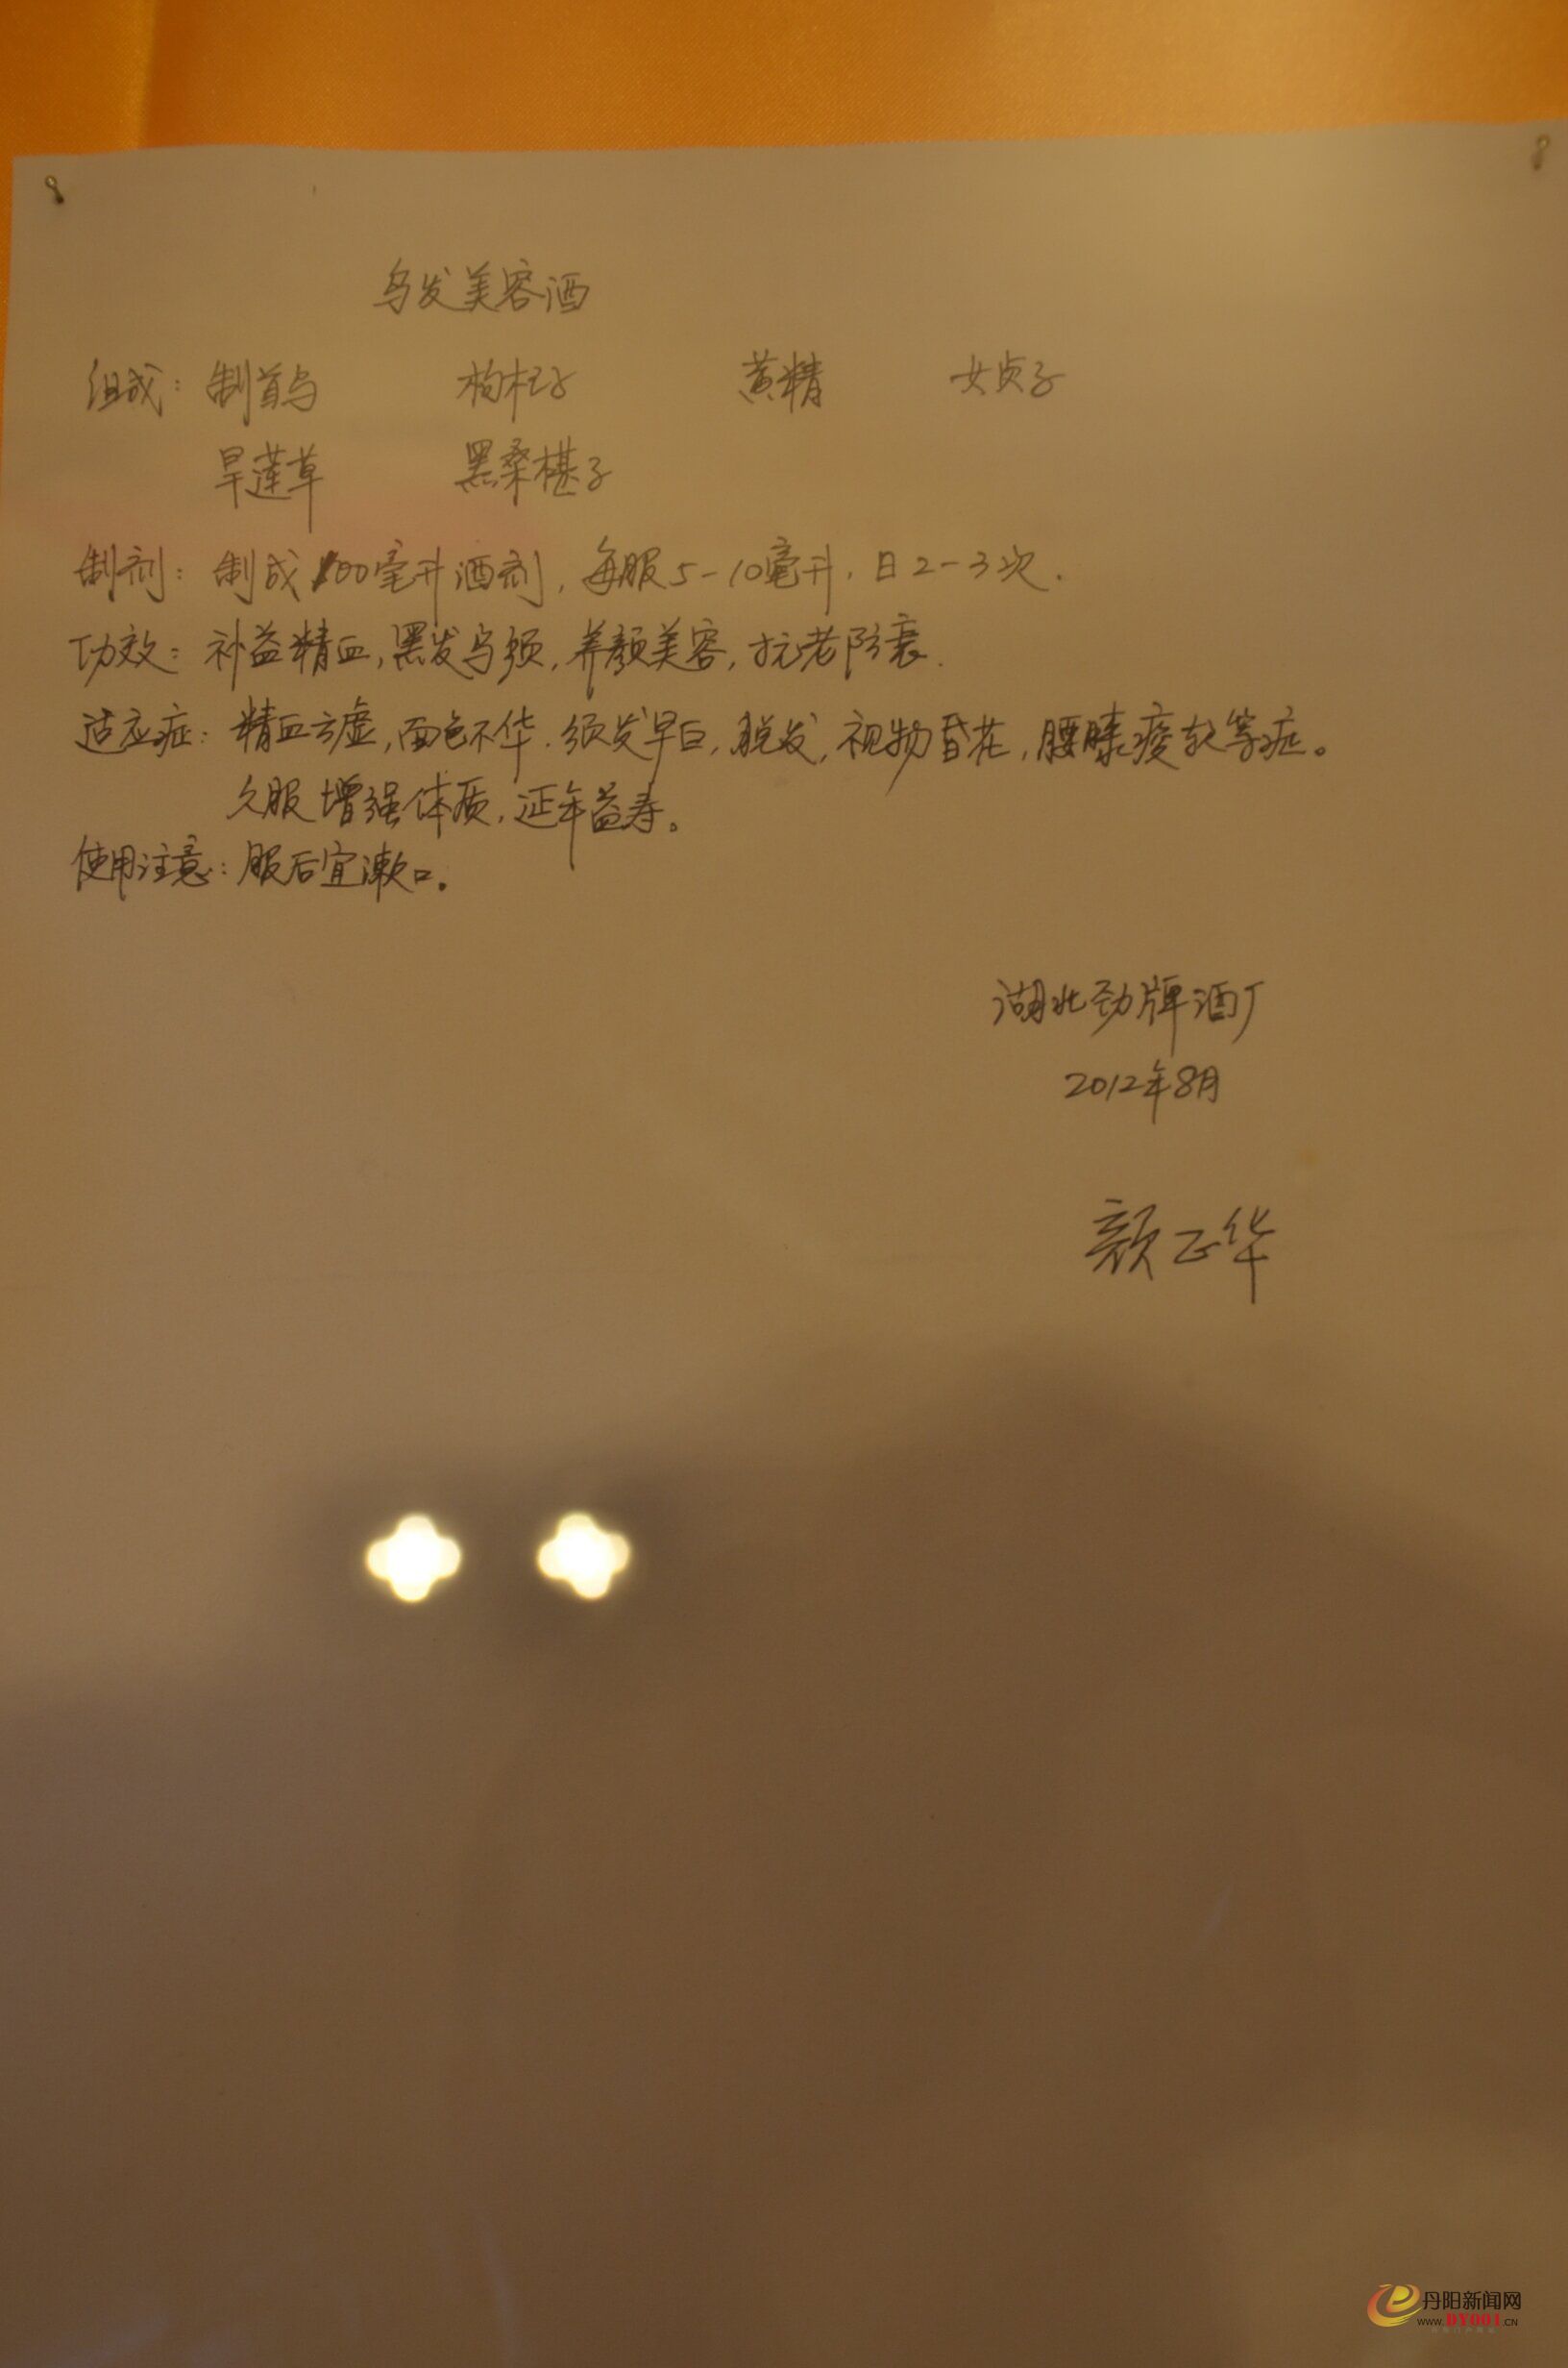 乌发美容酒
组成：制首乌 枸杞子 黄精 女贞子
旱莲草 黑桑椹子
制剂：制成100毫升酒剂，每服5-10毫升，日2-3次.
功效：补益精血，黑发乌须，养颜美容，抗老防衰.
适应症：精血亏虚，面色不华.须发早白，脱发，视物昏花，腰膝痠软等症。
久服增强体质，延年益寿。
使用注意：服后宜漱口。
湖北劲牌酒厂
2012年8月
颜正华
丹阳新闻网
www.DY001.CN